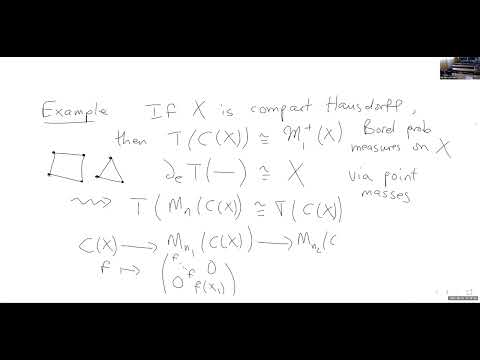 Example If X is compact Hausdorff,
then T(C(X)) ≅ M₁⁺(X) Borel prob
measures on X
∂ₑT(—) ≅ X via point
masses
⇝ T(Mₙ(C(X)) ≅ T(C(X))
C(X) ⟶ Mₙ₁(C(X)) ⟶ Mₙ₂(C
f ↦ (f ⋱ f 0
0 f(x₁))